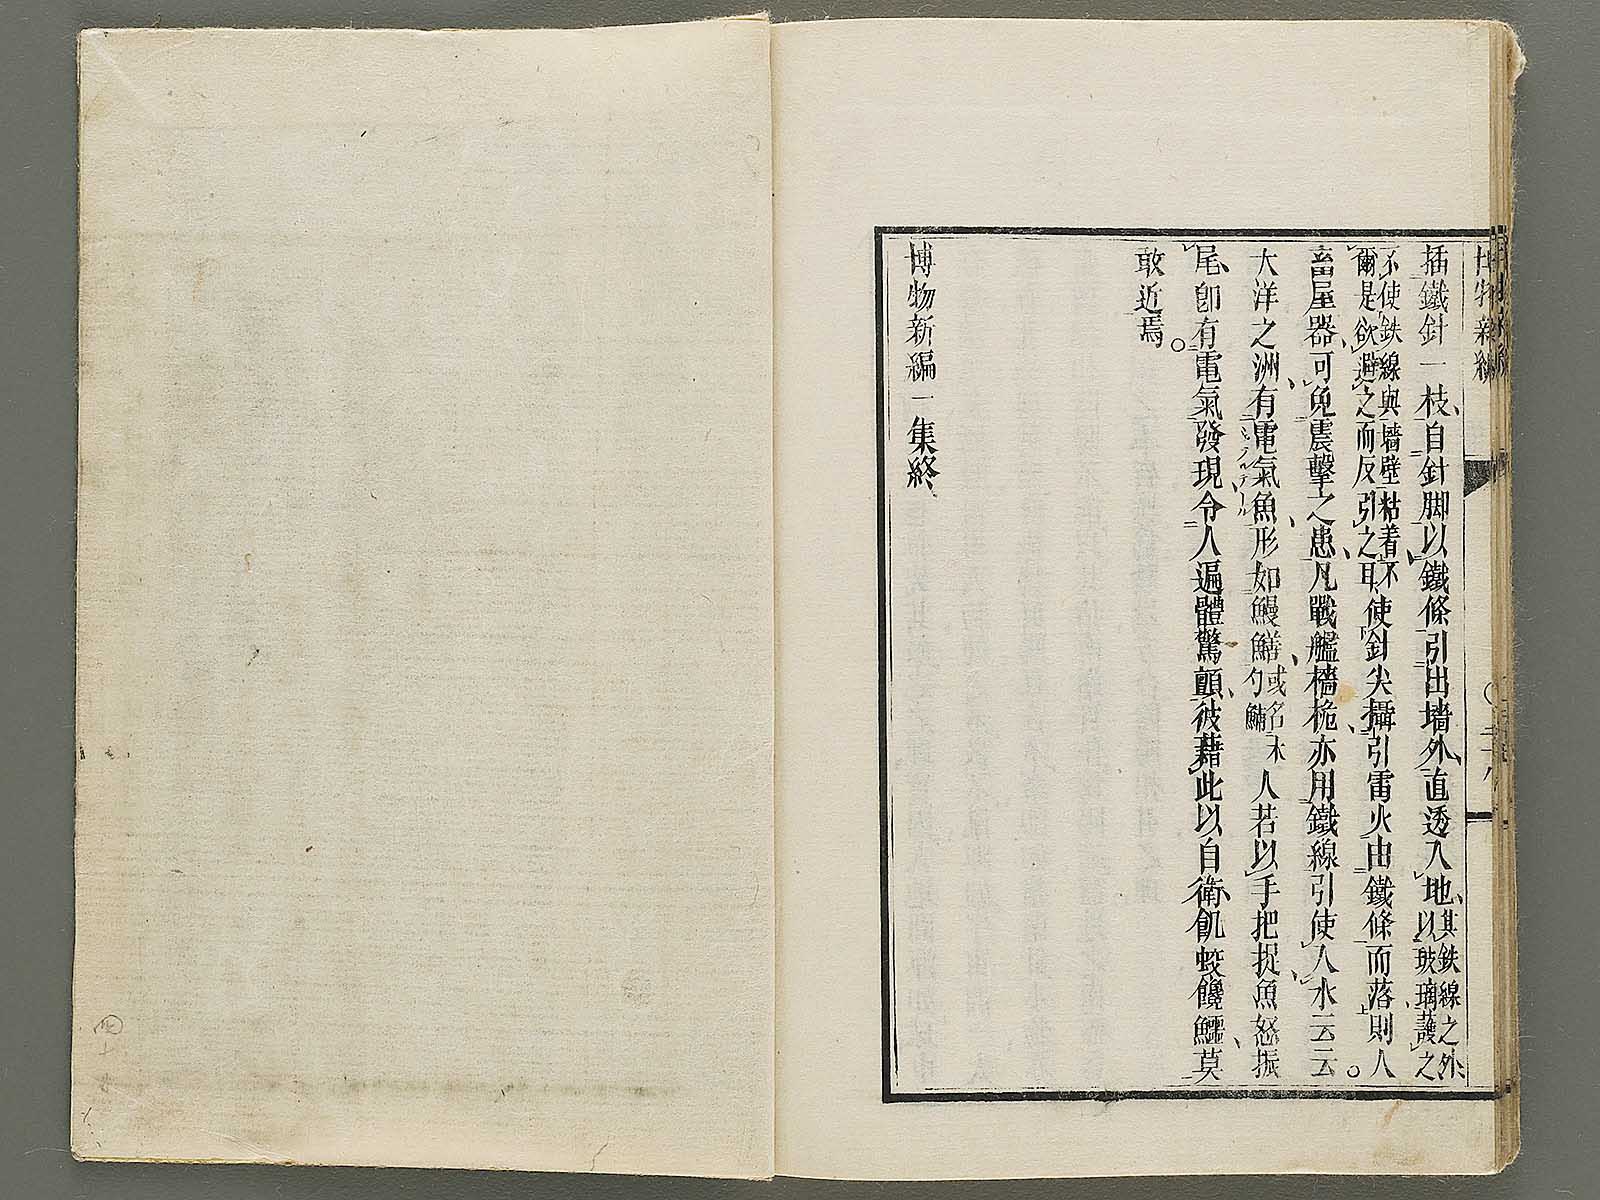 博物新編
插鐵針一枝、自針脚以鐵條引出墻外、直透入地、其鉄線之外、以玻璃護之
不使鉄線與墻壁粘着、不爾是欲避之而反引之耳、使針尖攝引雷火由鐵條而落則人
畜屋器、可免震擊之患、凡戰艦檣桅亦用鐵線引使入水云云。
大洋之洲、有電氣魚、形如鰻鱔、或名水勺鯆人若以手把捉魚怒振
尾、卽有電氣發現、令人遍體驚顫、彼藉此以自衛、飢蛟饞鱷、莫
敢近焉。
博物新編一集終、